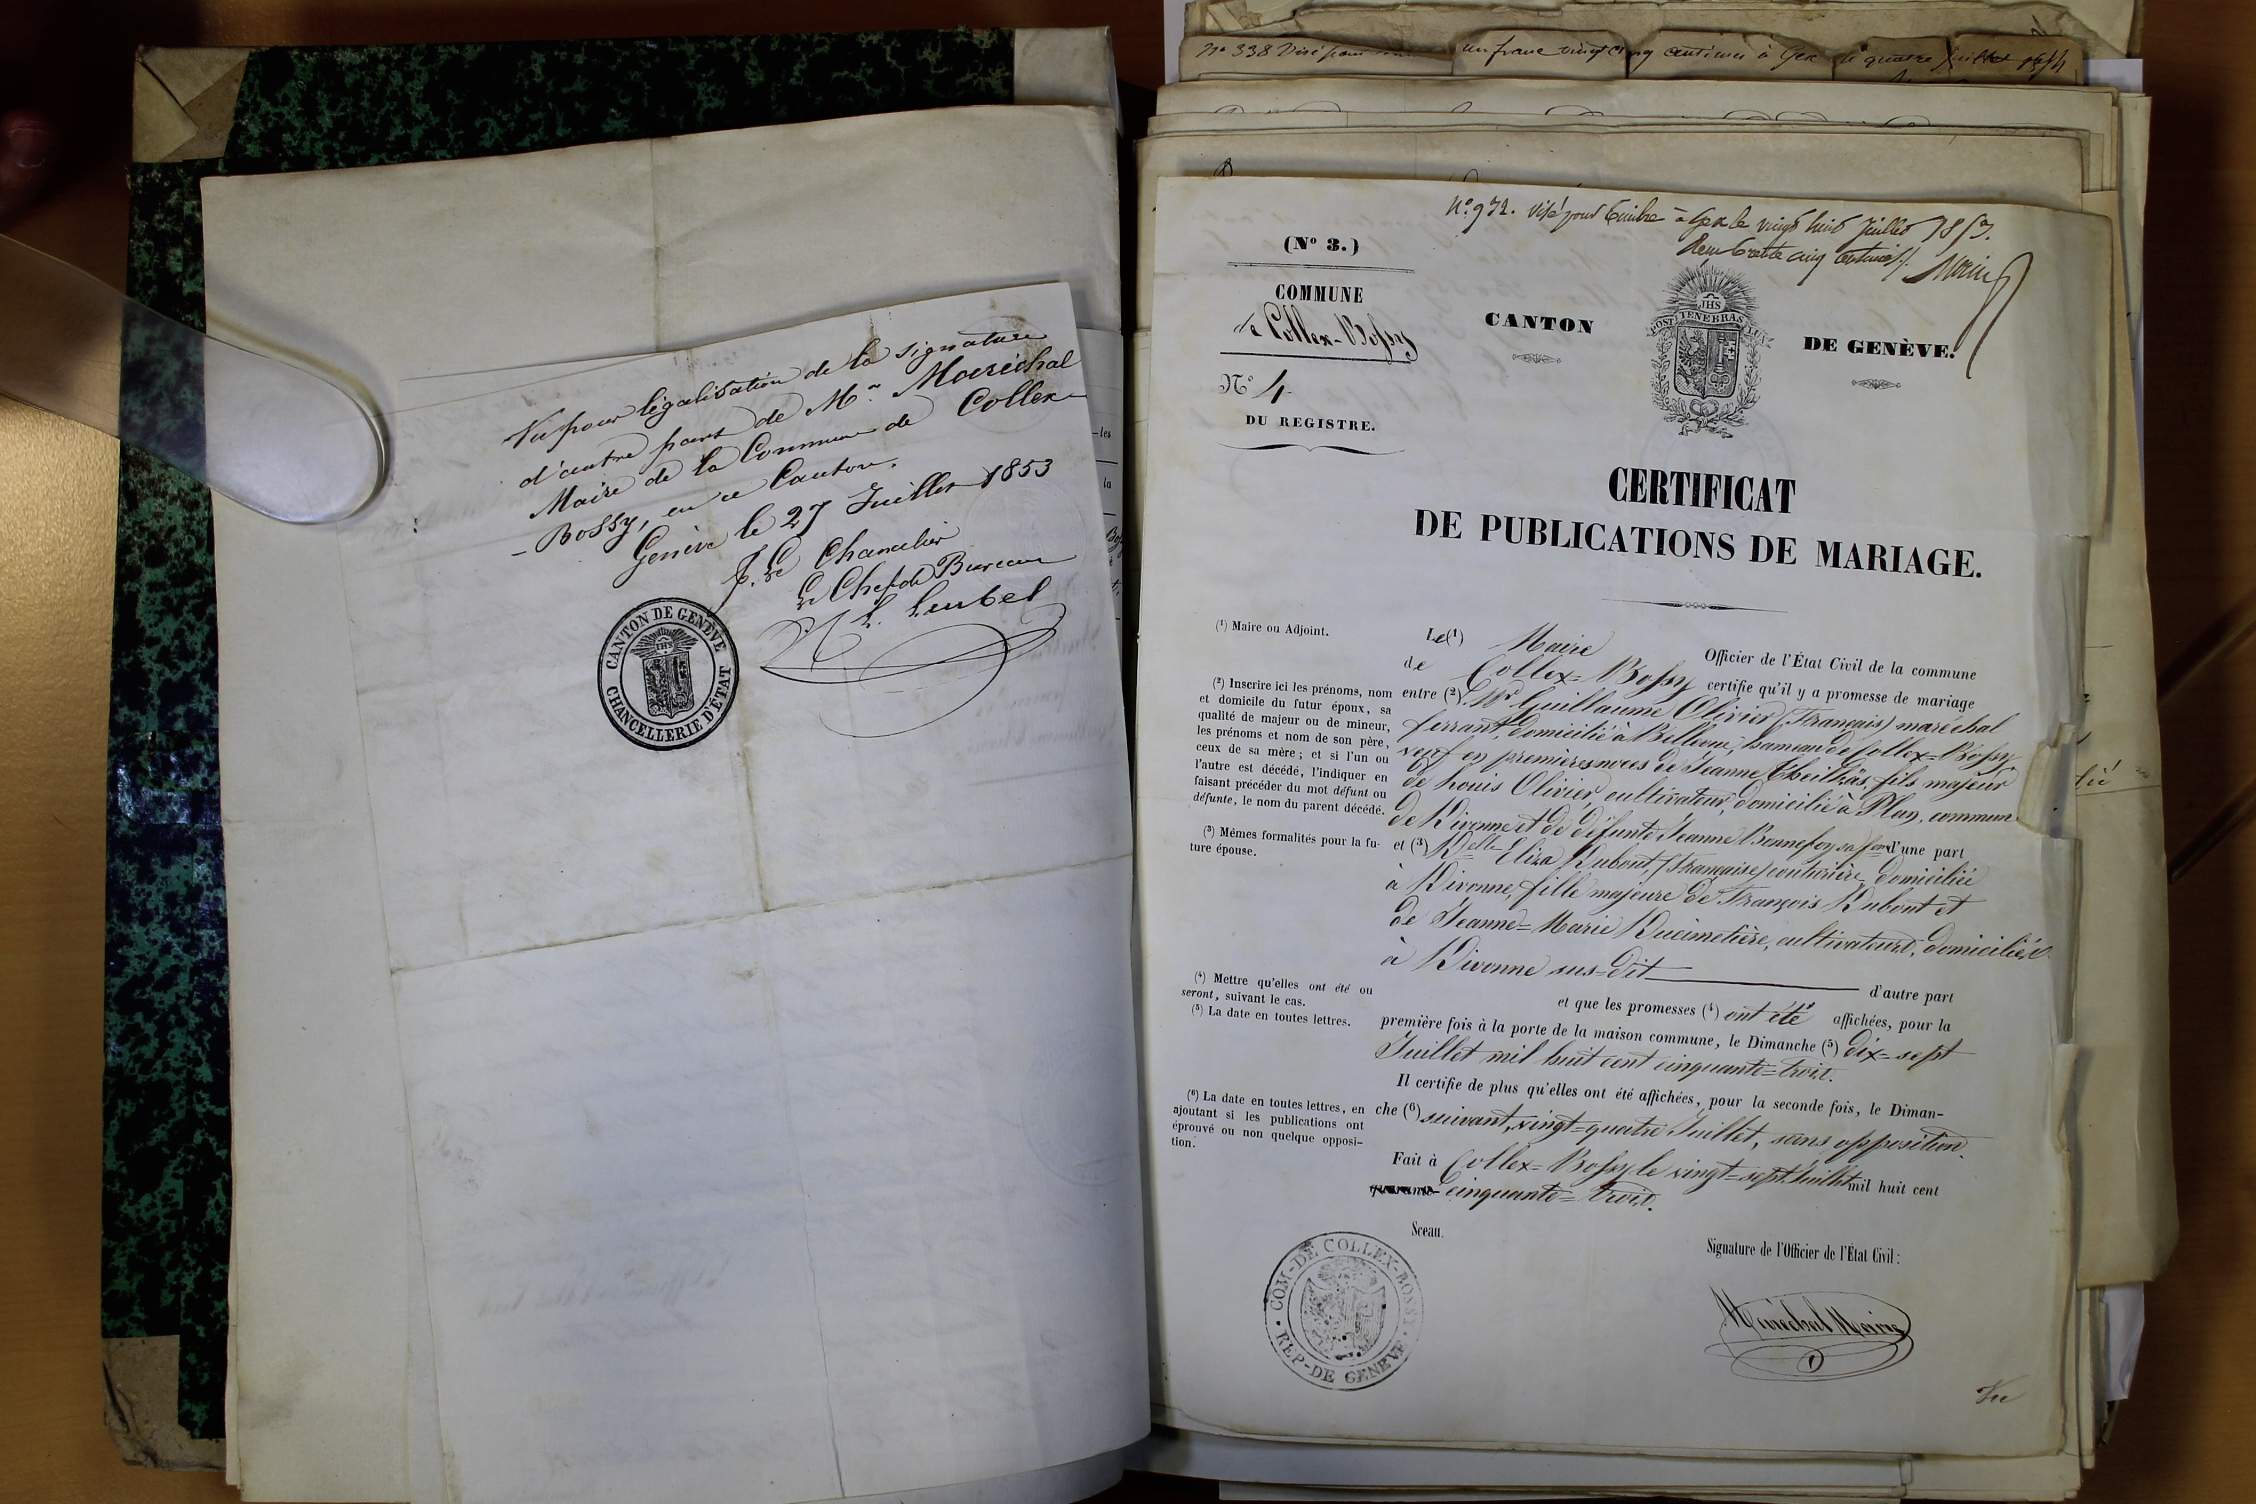 Vu pour légalisation de la signature
d'autre part de Mr. Maréchal
Maire de la Commune de Collex-
-Bossy, en ce Canton.
Genève le 27 Juillet 1853
p. Le Chancelier
Le Chef de Bureau
CANTON DE GENÈVE
CHANCELLERIE D'ÉTAT
IHS
No 338 Visé pour un franc vingt cinq centimes à Gex le quatre Juillet
No. 972. Visé pour timbre à Gex le vingt huit Juillet 1853.
trente cinq centimes.
(No 3.)
COMMUNE
de Collex-Bossy
No 4
DU REGISTRE.
CANTON
IHS
POST TENEBRAS LUX
DE GENÈVE.
CERTIFICAT
DE PUBLICATIONS DE MARIAGE.
(1) Maire ou Adjoint.
(2) Inscrire ici les prénoms, nom
et domicile du futur époux, sa
qualité de majeur ou de mineur,
les prénoms et nom de son père,
ceux de sa mère; et si l'un ou
l'autre est décédé, l'indiquer en
faisant précéder du mot défunt ou
défunte, le nom du parent décédé.
(3) Mêmes formalités pour la fu-
ture épouse.
(4) Mettre qu'elles ont été ou
seront, suivant le cas.
(5) La date en toutes lettres.
(6) La date en toutes lettres, en
ajoutant si les publications ont
éprouvé ou non quelque opposi-
tion.
Le (1) Maire Officier de l'État Civil de la commune
de Collex=Bossy certifie qu'il y a promesse de mariage
entre (2) Guillaume Olivier, (Français) maréchal
ferrant, domicilié à Bellevue, hameau de Collex=Bossy
veuf en premières noces de Jeanne fils majeur
de Louis Olivier, cultivateur, domicilié à Plan, commune
de Divonne et de défunte Jeanne Bonnefoy sa fem d'une part
et (3) Delle Eliza Dubout, (Française) couturière, domiciliée
à Divonne, fille majeure de François Dubout et
de Jeanne=Marie Ducimetière, cultivateurs, domiciliés
à Divonne sus=dit d'autre part
et que les promesses (4) ont été affichées, pour la
première fois à la porte de la maison commune, le Dimanche (5) dix=sept
Juillet mil huit cent cinquante=trois.
Il certifie de plus qu'elles ont été affichées, pour la seconde fois, le Diman-
che (6) suivant, vingt=quatre Juillet, sans opposition.
Fait à Collex=Bossy le vingt=sept Juillet mil huit cent
cinquante=trois.
Sceau.
Signature de l'Officier de l'État Civil:
COM-DE COLLEX-BOSSY
REP-DE GENÈVE
Maréchal Maire
Vu